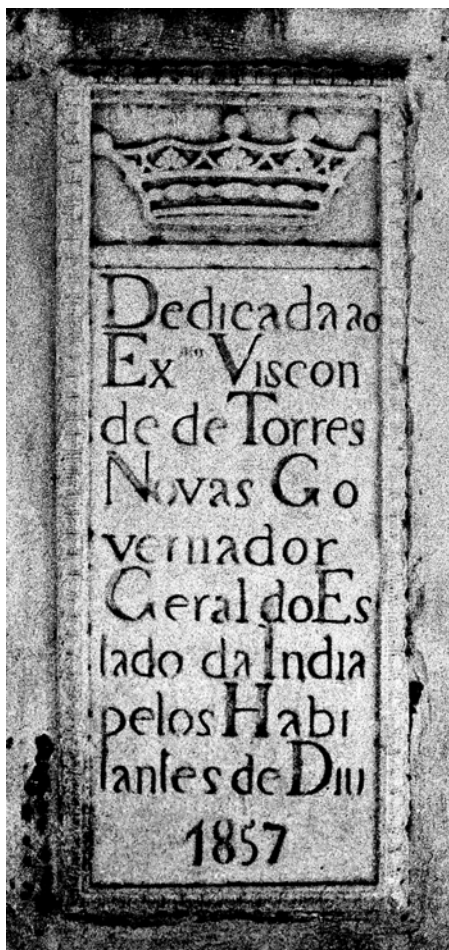 Dedicada ao
Exmo Viscon
de de Torres
Novas Go
vernador
Geral do Es
tado da India
pelos Habi
tantes de Diu
1857